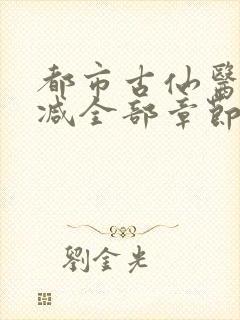 都市古仙醫
减全部章節
劉金光